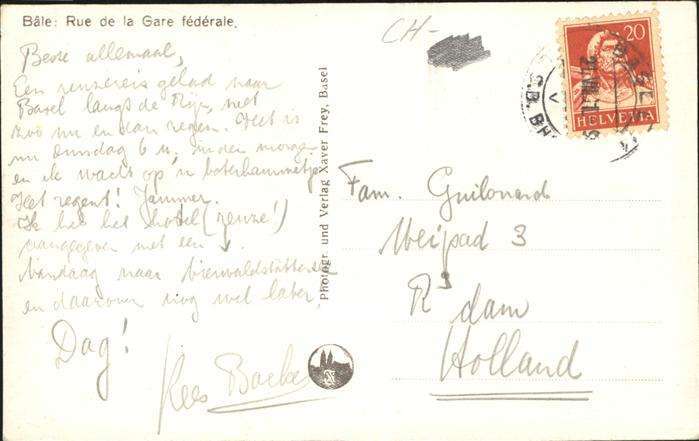 Bâle: Rue de la Gare fédérale.
CH-
Beste allemaal,
Een reuzereis gehad naar
Basel langs de Rijn, met
zoo nu en dan regen. Het is
nu dinsdag 6 u. in den morgen
en ik wacht op 'n boterhammetje
Het regent! Jammer.
Ik heb het hotel (reuze!)
aangegeven met een ↓.
Vandaag naar Vierwaldstätter
en daarover nog wel later.
Dag!
Kees
Photogr. und Verlag Xaver Frey, Basel
20
HELVETIA
Fam.
Weipad 3
R'dam
Holland